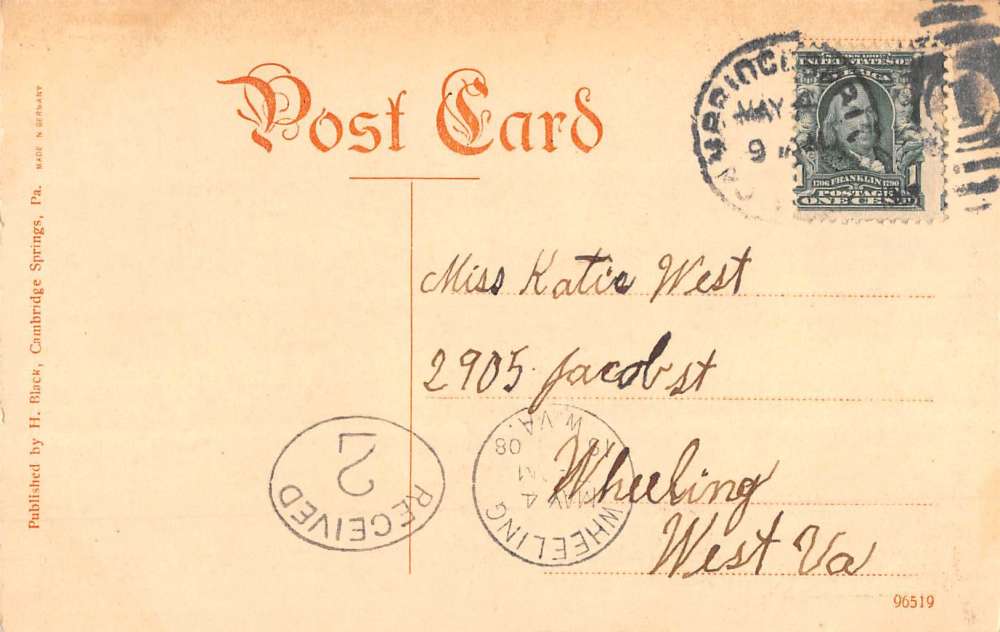 Post Card
Published by H. Black, Cambridge Springs, Pa.
MADE IN GERMANY
MAY
9
UNITED STATES OF
AMERICA
1706 FRANKLIN 1790
1 1
POSTAGE
ONE CENT
Miss Katie West
2905 Jacob st
Wheeling
West Va
RECEIVED
2
WHEELING
W.VA.
MAY 4
08
96519